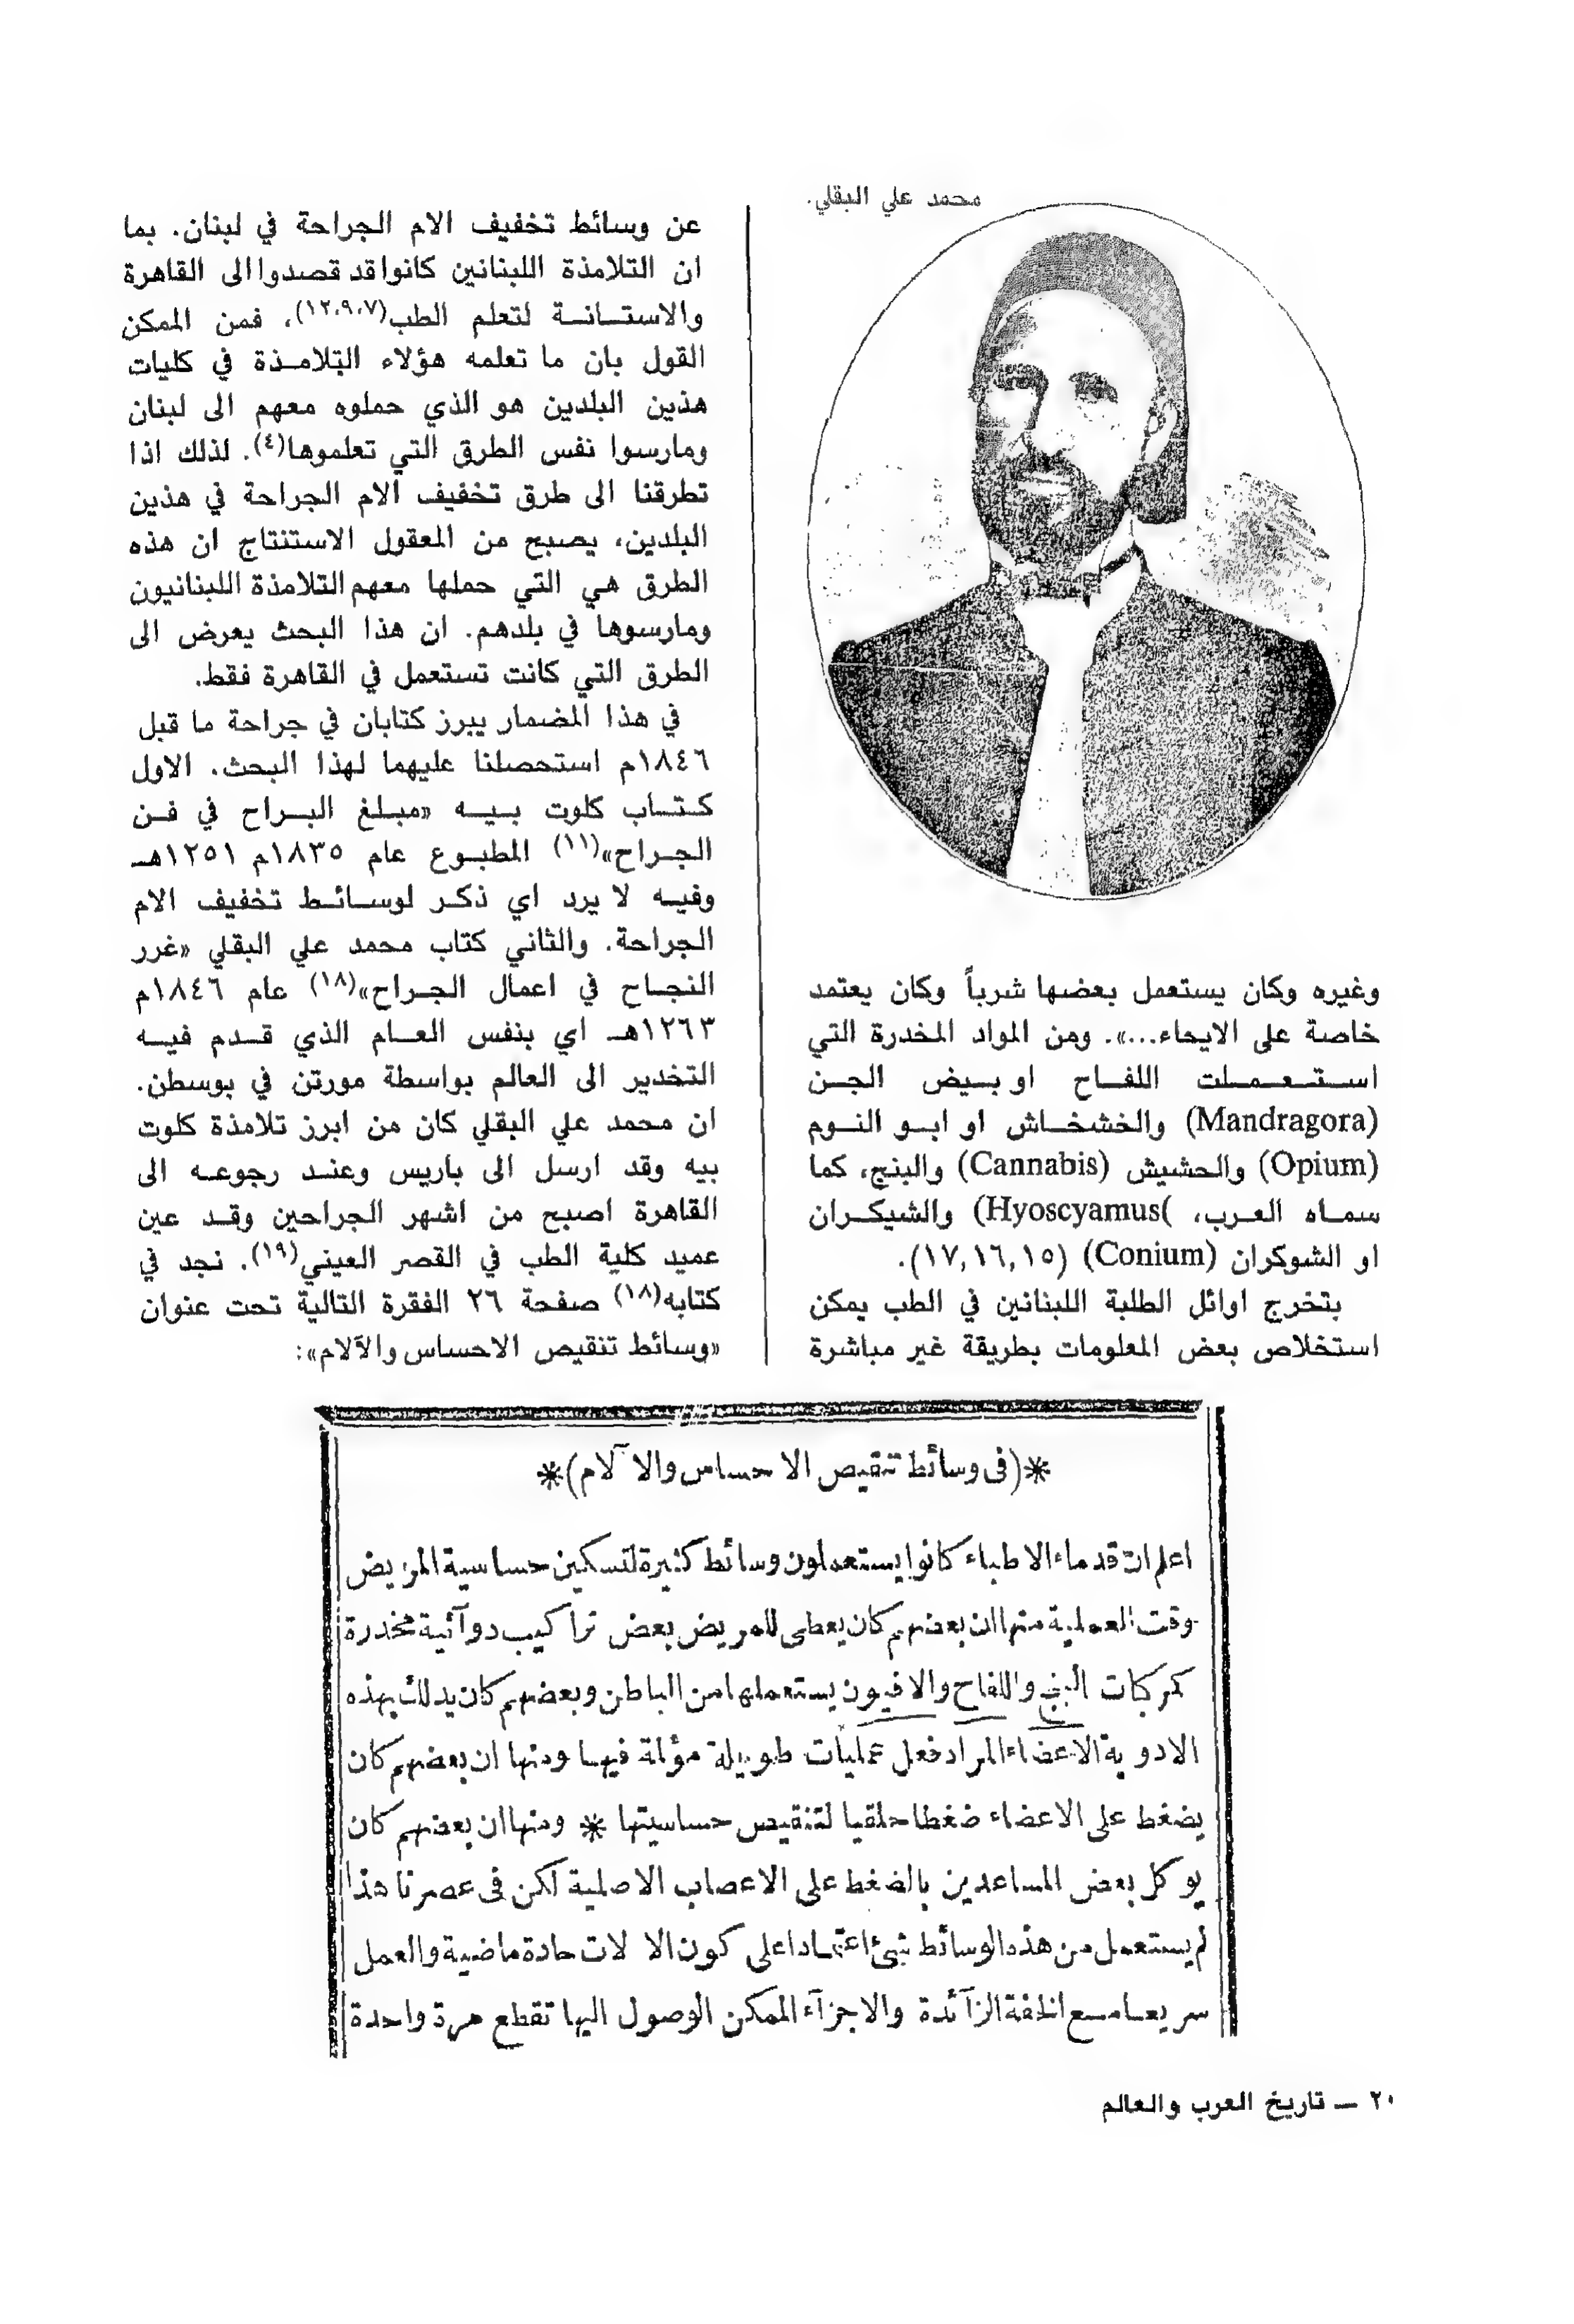 محمد علي البقلي.
وغيره وكان يستعمل بعضها شرباً وكان يعتمد
خاصة على الايحاء...». ومن المواد المخدرة التي
استعملت اللفاح او بيض الجن
(Mandragora) والخشخاش او ابو النوم
(Opium) والحشيش (Cannabis) والبنج، كما
سماه العرب، )Hyoscyamus) والشيكران
او الشوكران (Conium) (١٥,١٦,١٧).
بتخرج اوائل الطلبة اللبنانين في الطب يمكن
استخلاص بعض المعلومات بطريقة غير مباشرة
عن وسائط تخفيف الام الجراحة في لبنان. بما
ان التلامذة اللبنانين كانوا قد قصدوا الى القاهرة
والاستانة لتعلم الطب(٧،٩،١٢)، فمن الممكن
القول بان ما تعلمه هؤلاء التلامذة في كليات
هذين البلدين هو الذي حملوه معهم الى لبنان
ومارسوا نفس الطرق التي تعلموها(٤). لذلك اذا
تطرقنا الى طرق تخفيف آلام الجراحة في هذين
البلدين، يصبح من المعقول الاستنتاج ان هذه
الطرق هي التي حملها معهم التلامذة اللبنانيون
ومارسوها في بلدهم. ان هذا البحث يعرض الى
الطرق التي كانت تستعمل في القاهرة فقط.
في هذا المضمار يبرز كتابان في جراحة ما قبل
١٨٤٦م استحصلنا عليهما لهذا البحث. الاول
كتاب كلوت بيه «مبلغ البراح في فن
الجراح»(١١) المطبوع عام ١٨٣٥م ١٢٥١هـ
وفيه لا يرد اي ذكر لوسائط تخفيف الام
الجراحة. والثاني كتاب محمد علي البقلي «غرر
النجاح في اعمال الجراح»(١٨) عام ١٨٤٦م
١٢٦٣هـ اي بنفس العام الذي قدم فيه
التخدير الى العالم بواسطة مورتن في بوسطن.
ان محمد علي البقلي كان من ابرز تلامذة كلوت
بيه وقد ارسل الى باريس وعند رجوعه الى
القاهرة اصبح من اشهر الجراحين وقد عين
عميد كلية الطب في القصر العيني(١٩). نجد في
كتابه(١٨) صفحة ٢٦ الفقرة التالية تحت عنوان
«وسائط تنقيص الاحساس والآلام»:
*(فى وسائط تنقيص الاحساس والآلام)*
اعلم ان قدماء الاطباء كانوا يستعملون وسائط كثيرة لتسكين حساسية المريض
وقت العملية منها ان بعضهم كان يعطى للمريض بعض تراكيب دوآئية مخدرة
كمركبات البنج واللفاح والافيون يستعملها من الباطن وبعضهم كان يدلك بهذه
الادوية الاعضاء المراد فعل عمليات طويلة مؤلمة فيها ومنها ان بعضهم كان
يضغط على الاعضاء ضغطا حلقيا لتنقيص حساسيتها * ومنها ان بعضهم كان
يوكل بعض المساعدين بالضغط على الاعصاب الاصلية لكن فى عصرنا هذا
لم يستعمل من هذه الوسائط شئ اعتمادا على كون الالات حادة ماضية والعمل
سريعا مع الخفة الزآئدة والاجزآء الممكن الوصول اليها تقطع مرة واحدة
٢٠ — تاريخ العرب والعالم